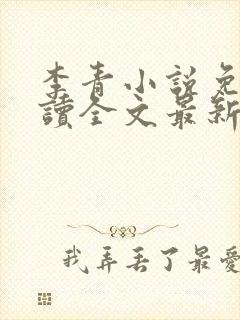 李青小說免
讀全文最新
我弄丟了最愛